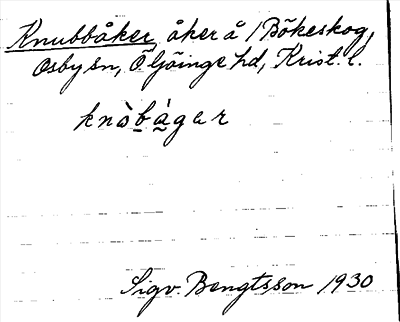 Knubbåker, åker å 1 Bökeskog,
Osby sn, Ö Göinge hd, Krist. l.
knòbágar
Sigv. Bengtsson 1930